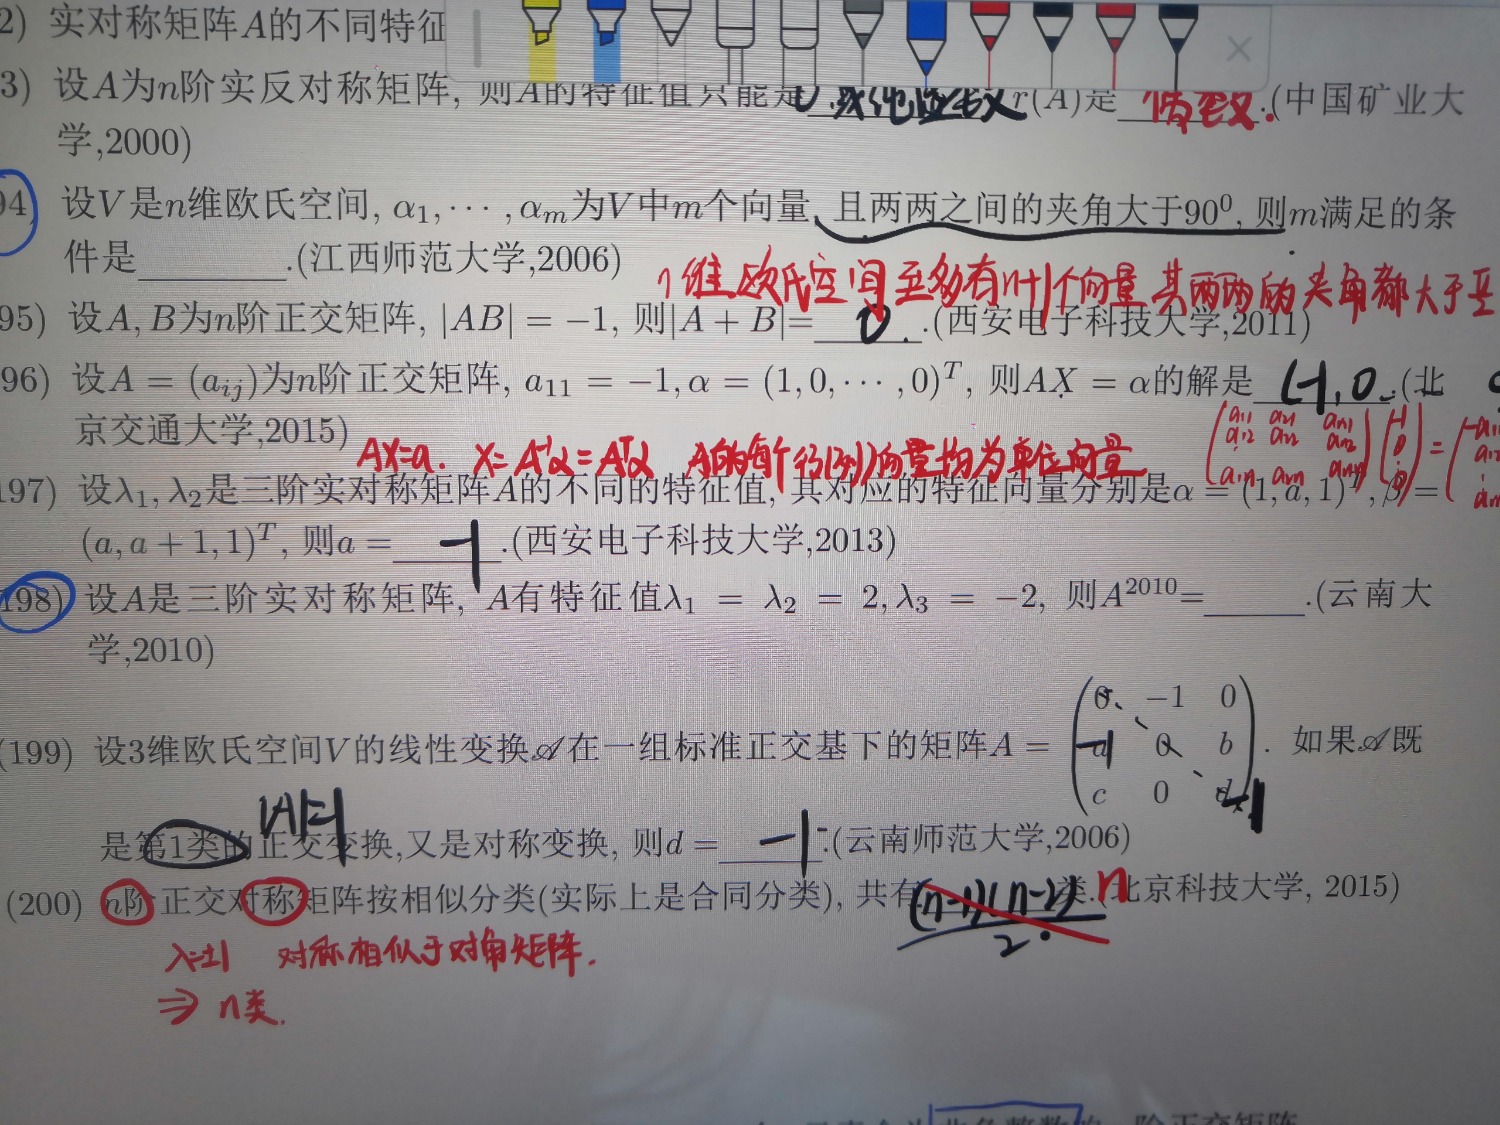 2) 实对称矩阵A的不同特征
3) 设A为n阶实反对称矩阵, 则A的特征值只能是 0或纯虚数 r(A)是 偶数.(中国矿业大
学,2000)
94) 设V是n维欧氏空间, α₁, ⋯ , αₘ为V中m个向量, 且两两之间的夹角大于90⁰, 则m满足的条
件是________.(江西师范大学,2006)
n维欧氏空间至多有n+1个向量其两两的夹角都大于
95) 设A, B为n阶正交矩阵, |AB| = −1, 则|A + B|= 0 .(西安电子科技大学,2011)
96) 设A = (aᵢⱼ)为n阶正交矩阵, a₁₁ = −1, α = (1, 0, ⋯ , 0)ᵀ, 则AX = α的解是 (-1,0 .(北
京交通大学,2015)
AX=α. X=A⁻¹α=Aᵀα A的每个行(列)向量均为单位向量
197) 设λ₁, λ₂是三阶实对称矩阵A的不同的特征值, 其对应的特征向量分别是α = (1, a, 1)ᵀ, β =
(a, a + 1, 1)ᵀ, 则a = -1 .(西安电子科技大学,2013)
198) 设A是三阶实对称矩阵, A有特征值λ₁ = λ₂ = 2, λ₃ = −2, 则A²⁰¹⁰=______.(云南大
学,2010)
0 −1 0
(199) 设3维欧氏空间V的线性变换𝒜在一组标准正交基下的矩阵A = a 0 b . 如果𝒜既
c 0 d -1
|A|=1
是第1类的正交变换,又是对称变换, 则d = -1 .(云南师范大学,2006)
(200) n阶正交对称矩阵按相似分类(实际上是合同分类), 共有 (n-1)(n-2)/2 类. n 北京科技大学, 2015)
λ=±1 对称相似于对角矩阵.
⇒ n类.